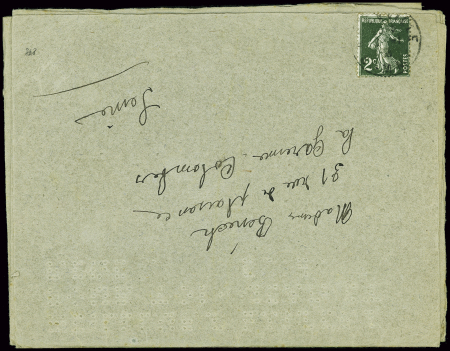 RÉPUBLIQUE FRANÇAISE
2c
POSTES
Madame Benech
31 rue de plaisance
la Garenne-Colombes
Seine